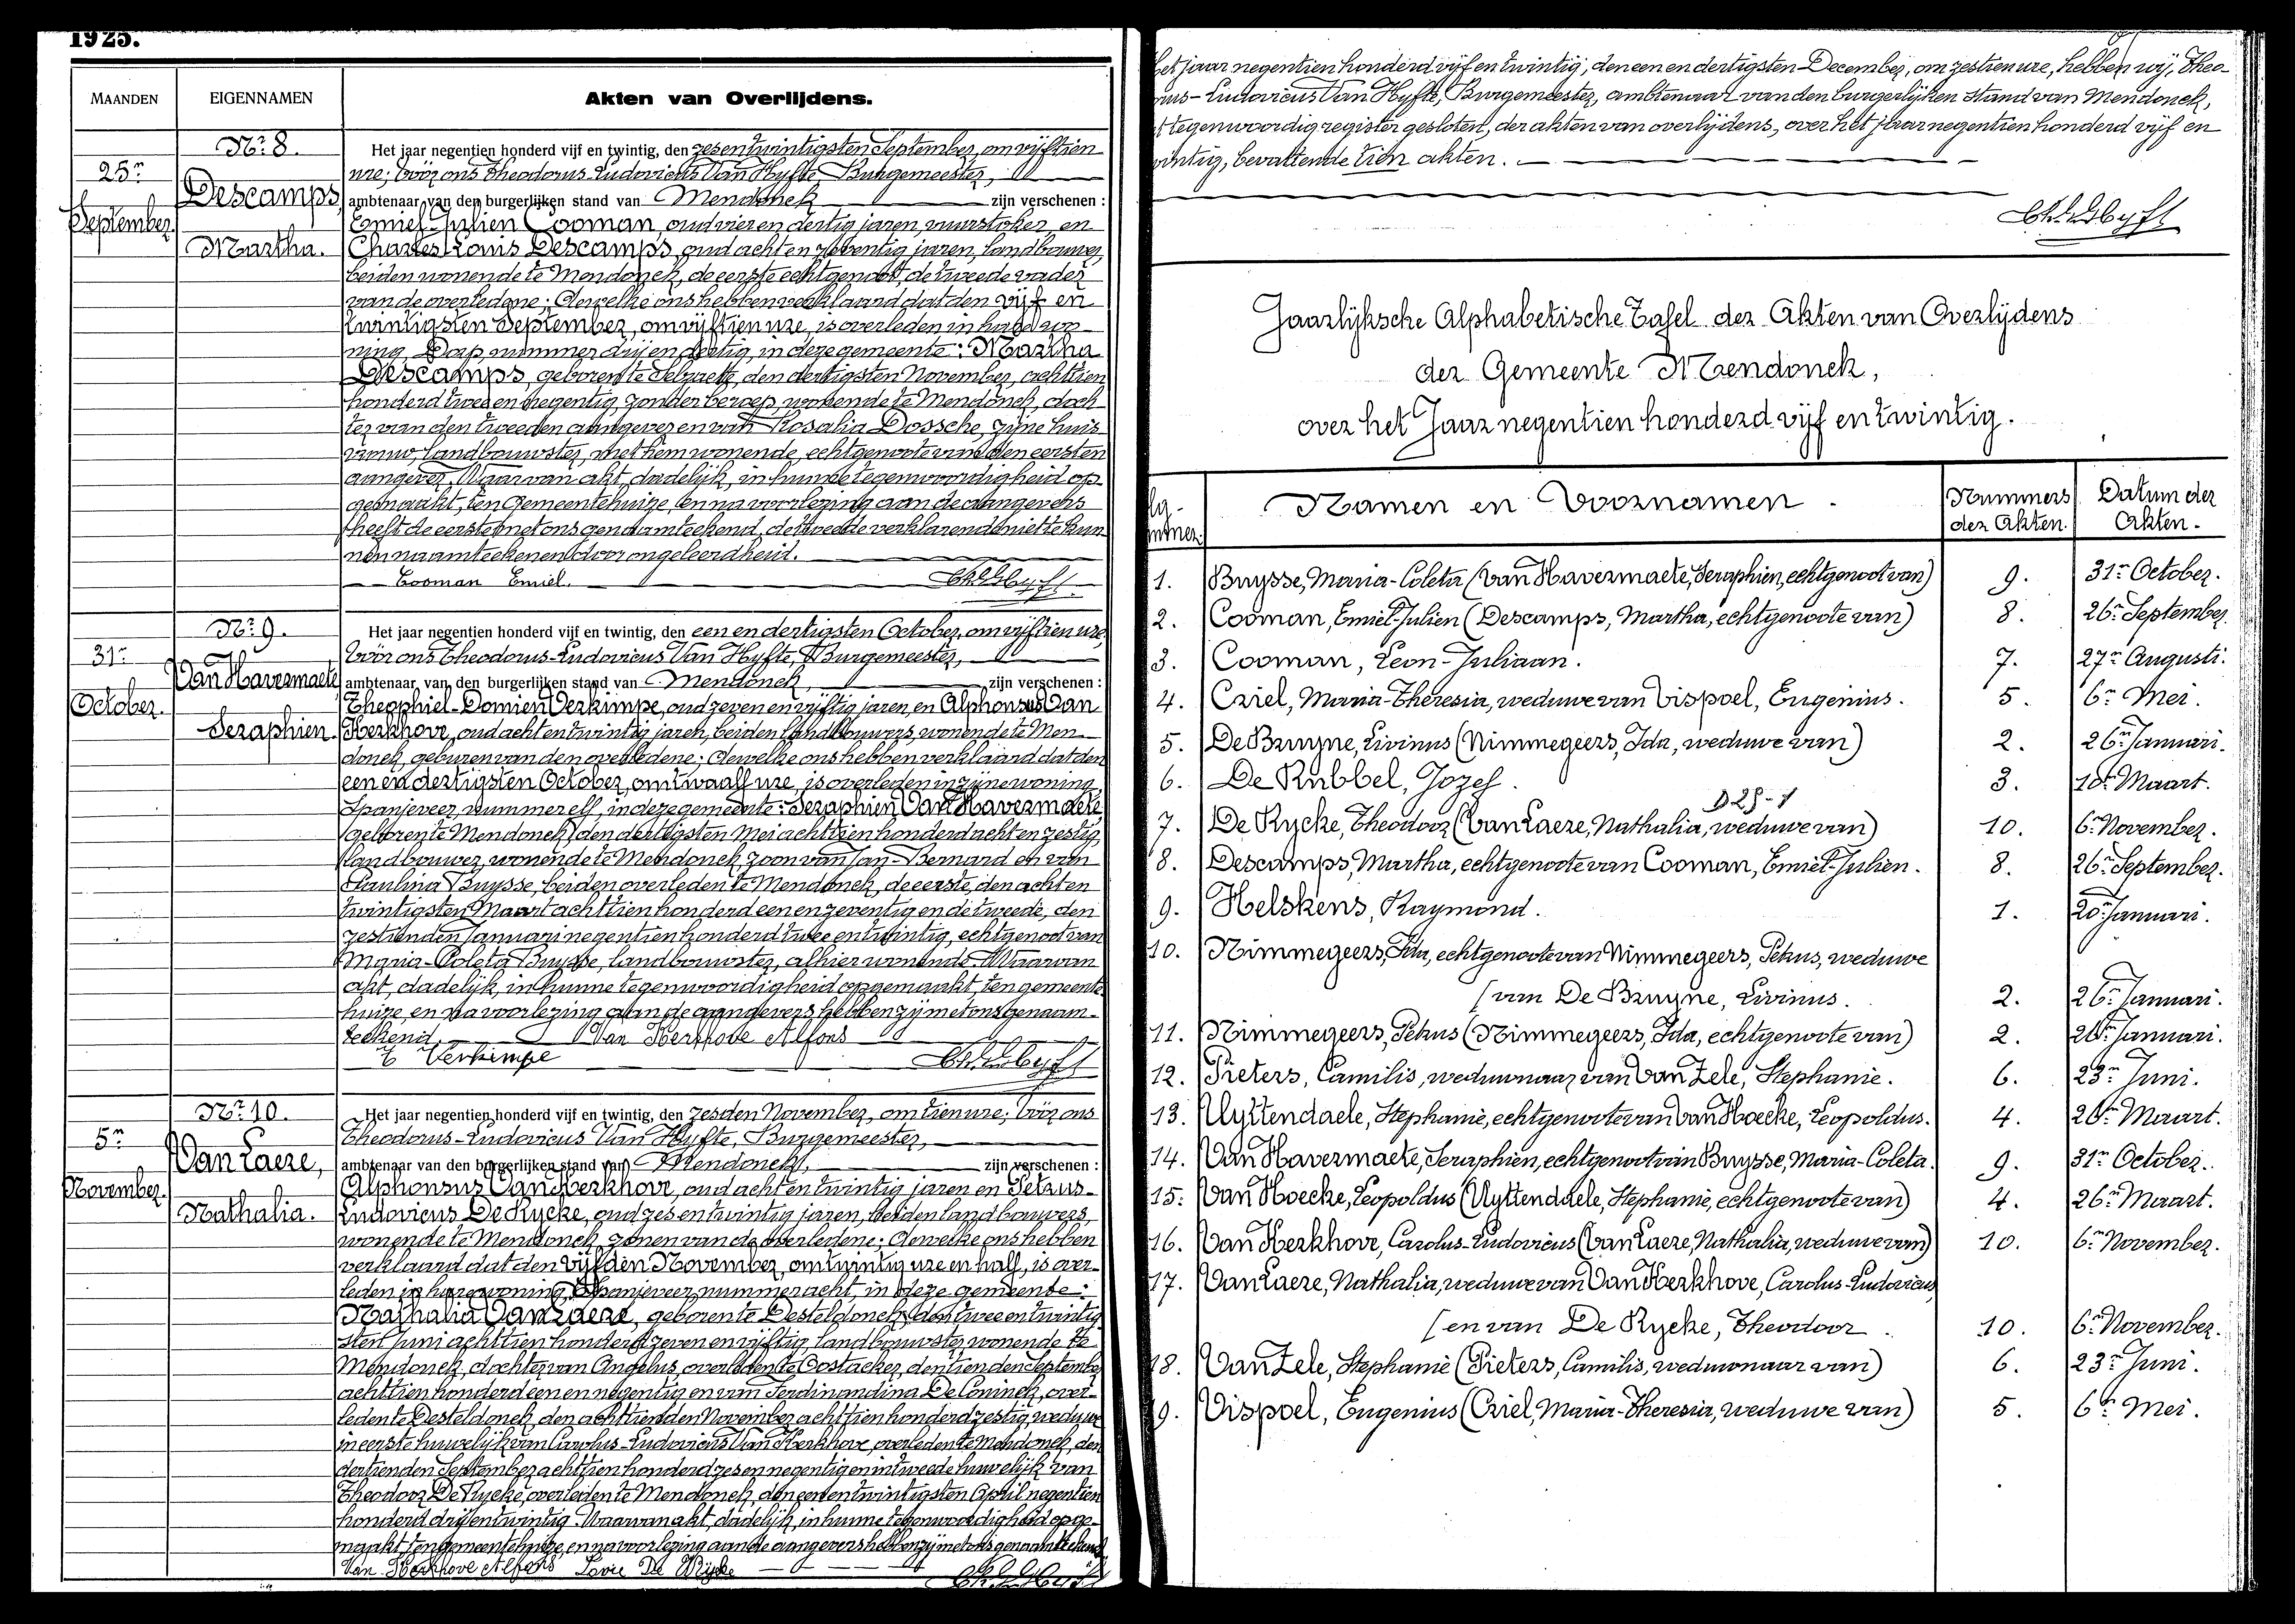 1925.
MAANDEN
EIGENNAMEN
Akten van Overlijdens.
No. 8.
25n
September.
Descamps,
Martha.
Het jaar negentien honderd vijf en twintig, den zesen twintigsten September, om vijftien
ure, vóór ons Theodorus-Ludovicus Van Hyfte, Burgemeester,
ambtenaar van den burgerlijken stand van Mendonck zijn verschenen :
Emiel-Julien Cooman, oud vier en dertig jaren, vuurstoker, en
Charles Louis Descamps, oud acht en zeventig jaren, landbouwer,
beiden wonende te Mendonck, de eerste echtgenoot, de tweede vader
van de overledene; dewelke ons hebben verklaard dat den vijf en
twintigsten September, om vijftien ure, is overleden in hare wo-
ning, Dorp, nummer drij en dertig, in deze gemeente: Martha
Descamps, geboren te Selzaete, den dertigsten November, achttien
honderd twee en negentig, zonder beroep, wonende te Mendonck, doch-
ter van den tweeden aangever en van Rosalia Dossche, zijne huis-
vrouw, landbouwster, met hem wonende, echtgenote van den eersten
aangever. Waarvan akt, dadelijk, in hunne tegenwoordigheid op-
gemaakt, ten Gemeentehuize, en na voorlezing aan de aangevers
heeft de eerste met ons genaamteekend, de tweede verklarende niet te kun-
nen naamteekenen door ongeleerdheid.
Cooman Emiel.
No. 9.
31n
October.
Van Havermaete
Seraphien.
Het jaar negentien honderd vijf en twintig, den een en dertigsten October, om vijftien ure,
vóór ons Theodorus-Ludovicus Van Hyfte, Burgemeester,
ambtenaar van den burgerlijken stand van Mendonck, zijn verschenen :
Theophiel-Domien Verkimpe, oud zeven en vijftig jaren, en Alphonsus Van
Herkhove, oud acht en twintig jaren, beiden landbouwers, wonende te Men-
donck, geburen van den overledene; dewelke ons hebben verklaard dat den
een en dertigsten October, om twaalf ure, is overleden in zijne woning,
Spanjeveer, nummer elf, in deze gemeente: Seraphien Van Havermaete,
geboren te Mendonck, den dertigsten Mei achttien honderd acht en zestig,
landbouwer, wonende te Mendonck, zoon van Jan-Bernard en van
Paulina Buysse, beiden overleden te Mendonck, de eerste, den acht en
twintigsten Maart achttien honderd een en zeventig en de tweede, den
zestienden Januari negentien honderd twee en twintig, echtgenoot van
Maria-Coleta Buysse, landbouwster, alhier wonende. Waarvan
akt, dadelijk, in hunne tegenwoordigheid opgemaakt, ten gemeente-
huize, en na voorlezing aan de aangevers hebben zij met ons genaam-
teekend. Van Herkhove Alfons
T Verkimpe
No. 10.
5n
November.
Van Laere,
Nathalia.
Het jaar negentien honderd vijf en twintig, den zesden November, om tien ure, vóór ons
Theodorus-Ludovicus Van Hyfte, Burgemeester,
ambtenaar van den burgerlijken stand van Mendonck, zijn verschenen :
Alphonsus Van Herkhove, oud acht en twintig jaren en Petrus-
Ludovicus De Rycke, oud zes en twintig jaren, beiden landbouwers,
wonende te Mendonck, zonen van de overledene; dewelke ons hebben
verklaard dat den vijfden November, om twintig ure en half, is over-
leden in hare woning, Spanjeveer, nummer acht, in deze gemeente:
Nathalia Van Laere, geboren te Desteldonck, den twee en twintig-
sten Juni achttien honderd zeven en vijftig, landbouwster, wonende te
Mendonck, dochter van Angelus, overleden te Oostacker, den tienden September
achttien honderd een en negentig en van Ferdinandina De Coninck, over-
leden te Desteldonck, den achttienden November achttien honderd zestig, weduwe
in eerste huwelijk van Carolus-Ludovicus Van Herkhove, overleden te Mendonck, den
dertienden September achttien honderd zes en negentig en in tweede huwelijk van
Theodoor De Rycke, overleden te Mendonck, den een en twintigsten April negentien
honderd drij en twintig. Waarvan akt, dadelijk, in hunne tegenwoordigheid opge-
maakt, ten gemeentehuize, en na voorlezing aan de aangevers hebben zij met ons genaamteekend.
Van Herkhove Alfons
het jaar negentien honderd vijf en twintig, den een en dertigsten December, om zestien ure, hebben wij, Theo-
rus-Ludovicus Van Hyfte, Burgemeester, ambtenaar van den burgerlijken stand van Mendonck,
t tegenwoordig register gesloten, der akten van overlijdens, over het jaar negentien honderd vijf en
wintig, bevattende tien akten.
Jaarlijksche Alphabetische Tafel der Akten van Overlijdens
der Gemeente Mendonck,
over het Jaar negentien honderd vijf en twintig.
Namen en Voornamen
Nummers der Akten.
Datum der Akten.
1. Buysse, Maria-Coleta (Van Havermaete, Seraphien, echtgenoot van) 9. 31n October.
2. Cooman, Emiel-Julien (Descamps, Martha, echtgenoote van) 8. 26n September.
3. Cooman, Leon-Juliaan. 7. 27n Augusti.
4. Criel, Maria-Theresia, weduwe van Vispoel, Eugenius. 5. 6n Mei.
5. De Bruyne, Livinus (Nimmegeers, Ida, weduwe van) 2. 26n Januari.
6. De Rubbel, Jozef. 3. 18n Maart.
7. De Rycke, Theodoor (Van Laere, Nathalia, weduwe van) 10. 6n November.
8. Descamps, Martha, echtgenoote van Cooman, Emiel-Julien. 8. 26n September.
9. Helskens, Raymond. 1. 20n Januari.
10. Nimmegeers, Ida, echtgenoote van Nimmegeers, Petrus, weduwe
(van De Bruyne, Livinus. 2. 26n Januari.
11. Nimmegeers, Petrus (Nimmegeers, Ida, echtgenoote van) 2. 26n Januari.
12. Pieters, Camilis, weduwnaar van Van Zele, Stephanie. 6. 23n Juni.
13. Uyttendaele, Stephanie, echtgenoote van Van Hoecke, Leopoldus. 4. 26n Maart.
14. Van Havermaete, Seraphien, echtgenoot van Buysse, Maria-Coleta. 9. 31n October.
15. Van Hoecke, Leopoldus (Uyttendaele, Stephanie, echtgenoote van) 4. 26n Maart.
16. Van Herkhove, Carolus-Ludovicus (Van Laere, Nathalia, weduwe van) 10. 6n November.
17. Van Laere, Nathalia, weduwe van Van Herkhove, Carolus-Ludovicus
(en van De Rycke, Theodoor. 10. 6n November.
18. Van Zele, Stephanie (Pieters, Camilis, weduwnaar van) 6. 23n Juni.
9. Vispoel, Eugenius (Criel, Maria-Theresia, weduwe van) 5. 6n Mei.